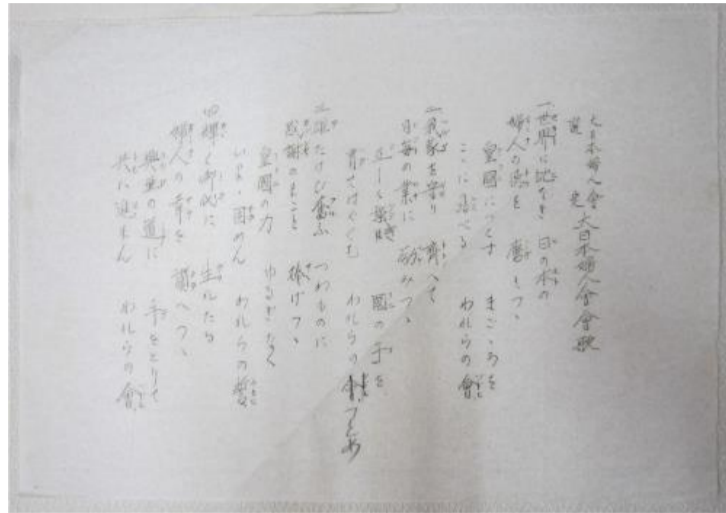 大日本婦人會
選定 大日本婦人會會歌
一世界に比なき 日の本の
婦人の徳を 磨きつゝ
皇國につくす まごゝろを
こゝに浩べる われらの會
二我家を守り 齊へて
日毎の業に 励みつゝ
正しく楽しき 國の子を
育てはぐくむ われらの つとめ
三雄たけび奮ふ つわものに
感謝のまこと 捧げつゝ
皇國の力 ゆるぎなく
いよゝ固めん われらの誓
四輝く御代に 生れたる
婦人の幸を 讃へつゝ
興亜の道に 手をとりて
共に進まん われらの會